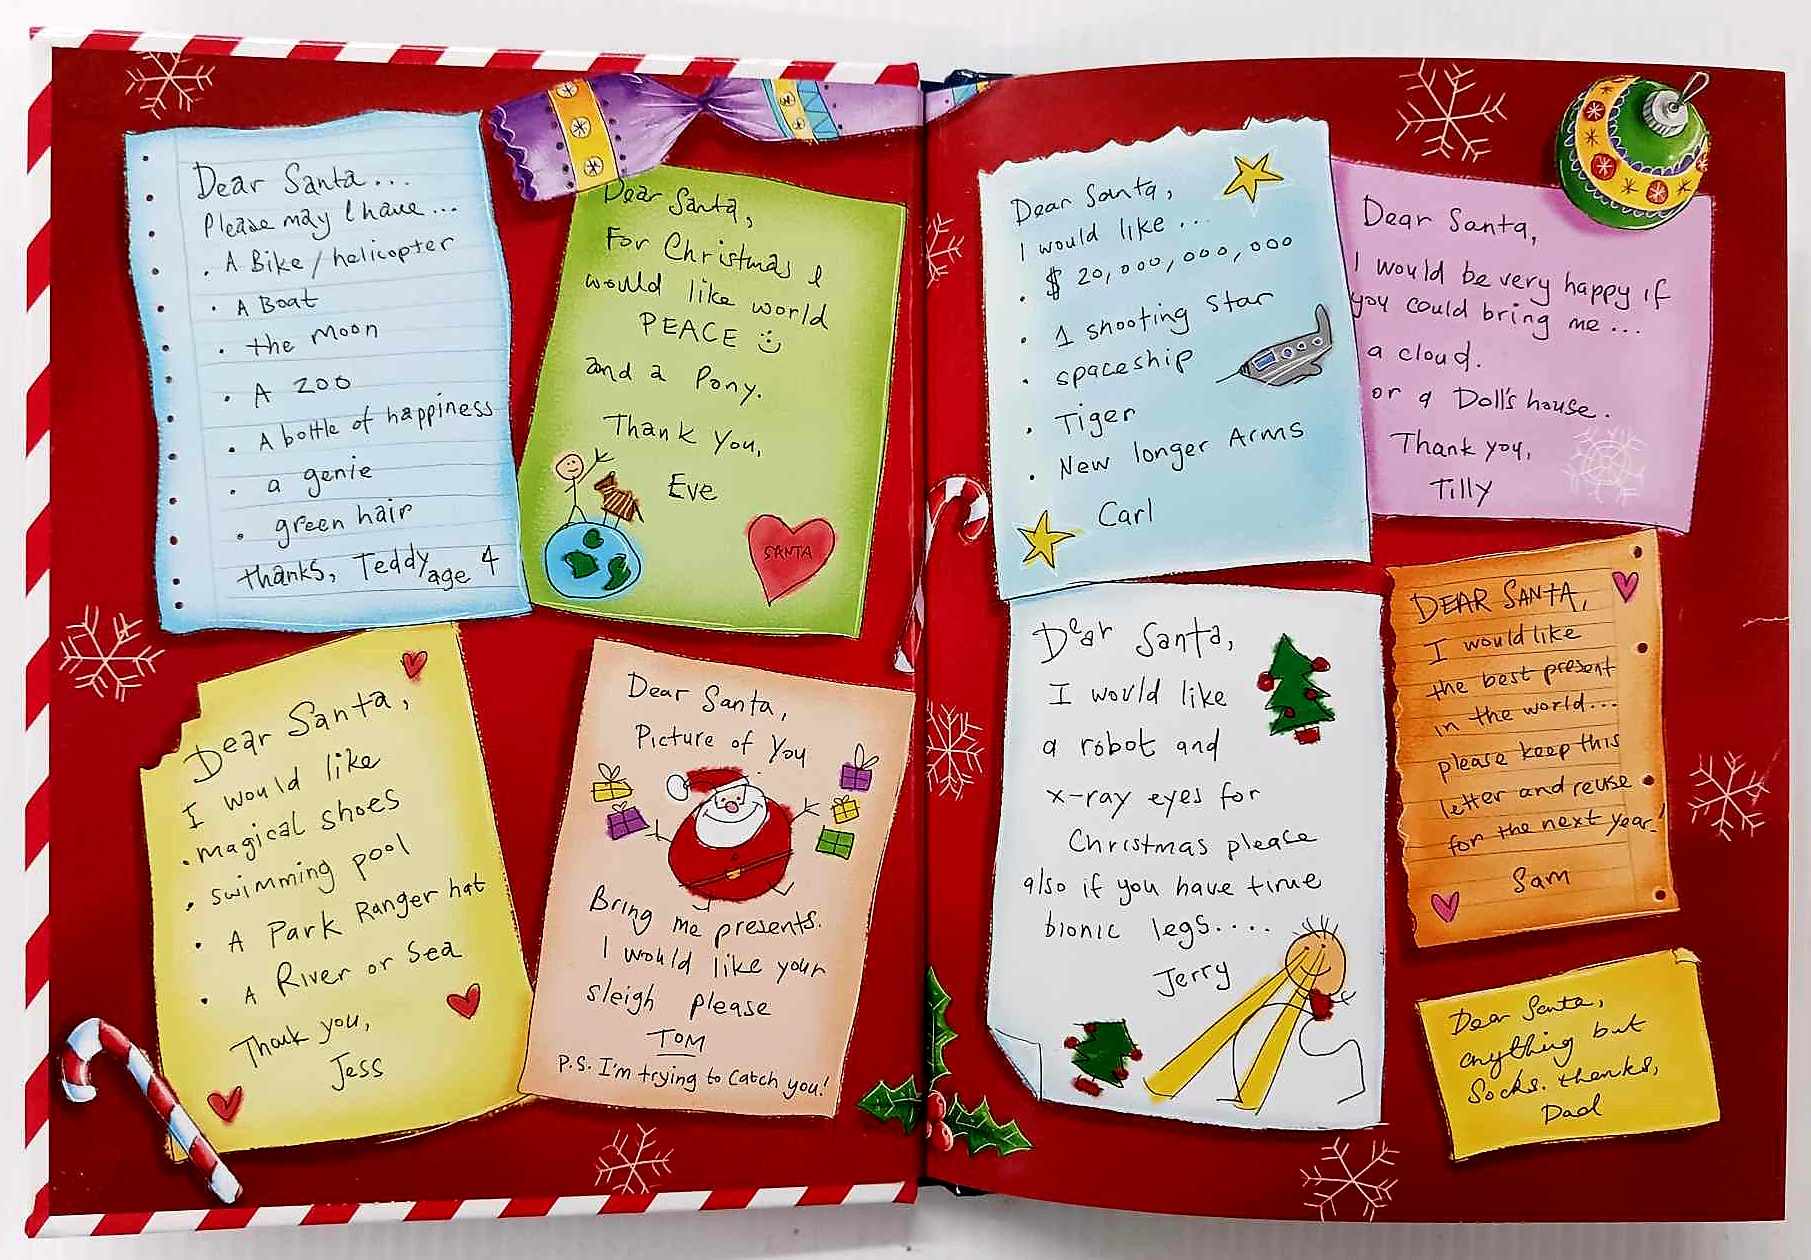 Dear Santa...
Please may I have...
. A Bike / helicopter
. A Boat
. the Moon
. A zoo
. A bottle of happiness
. a genie
. green hair
thanks, Teddy age 4
Dear Santa,
For Christmas I
would like world
PEACE
and a Pony.
Thank You,
Eve
SANTA
Dear Santa,
I would like
. magical shoes
. swimming pool
. A Park Ranger hat
. A River or Sea
Thank you,
Jess
Dear Santa,
Picture of You
Bring me presents.
I would like your
sleigh please
TOM
P.S. I'm trying to Catch you!
Dear Santa,
I would like...
. $ 20,000,000,000
. 1 shooting star
. spaceship
. Tiger
. New longer Arms
Carl
Dear Santa,
I would be very happy if
you could bring me...
a cloud.
or a Doll's house.
Thank you,
Tilly
Dear Santa,
I would like
a robot and
x-ray eyes for
Christmas please
also if you have time
bionic legs....
Jerry
DEAR SANTA,
I would like
the best present
in the world...
please keep this
letter and reuse
for the next year!
Sam
Dear Santa,
anything but
Socks. thanks,
Dad